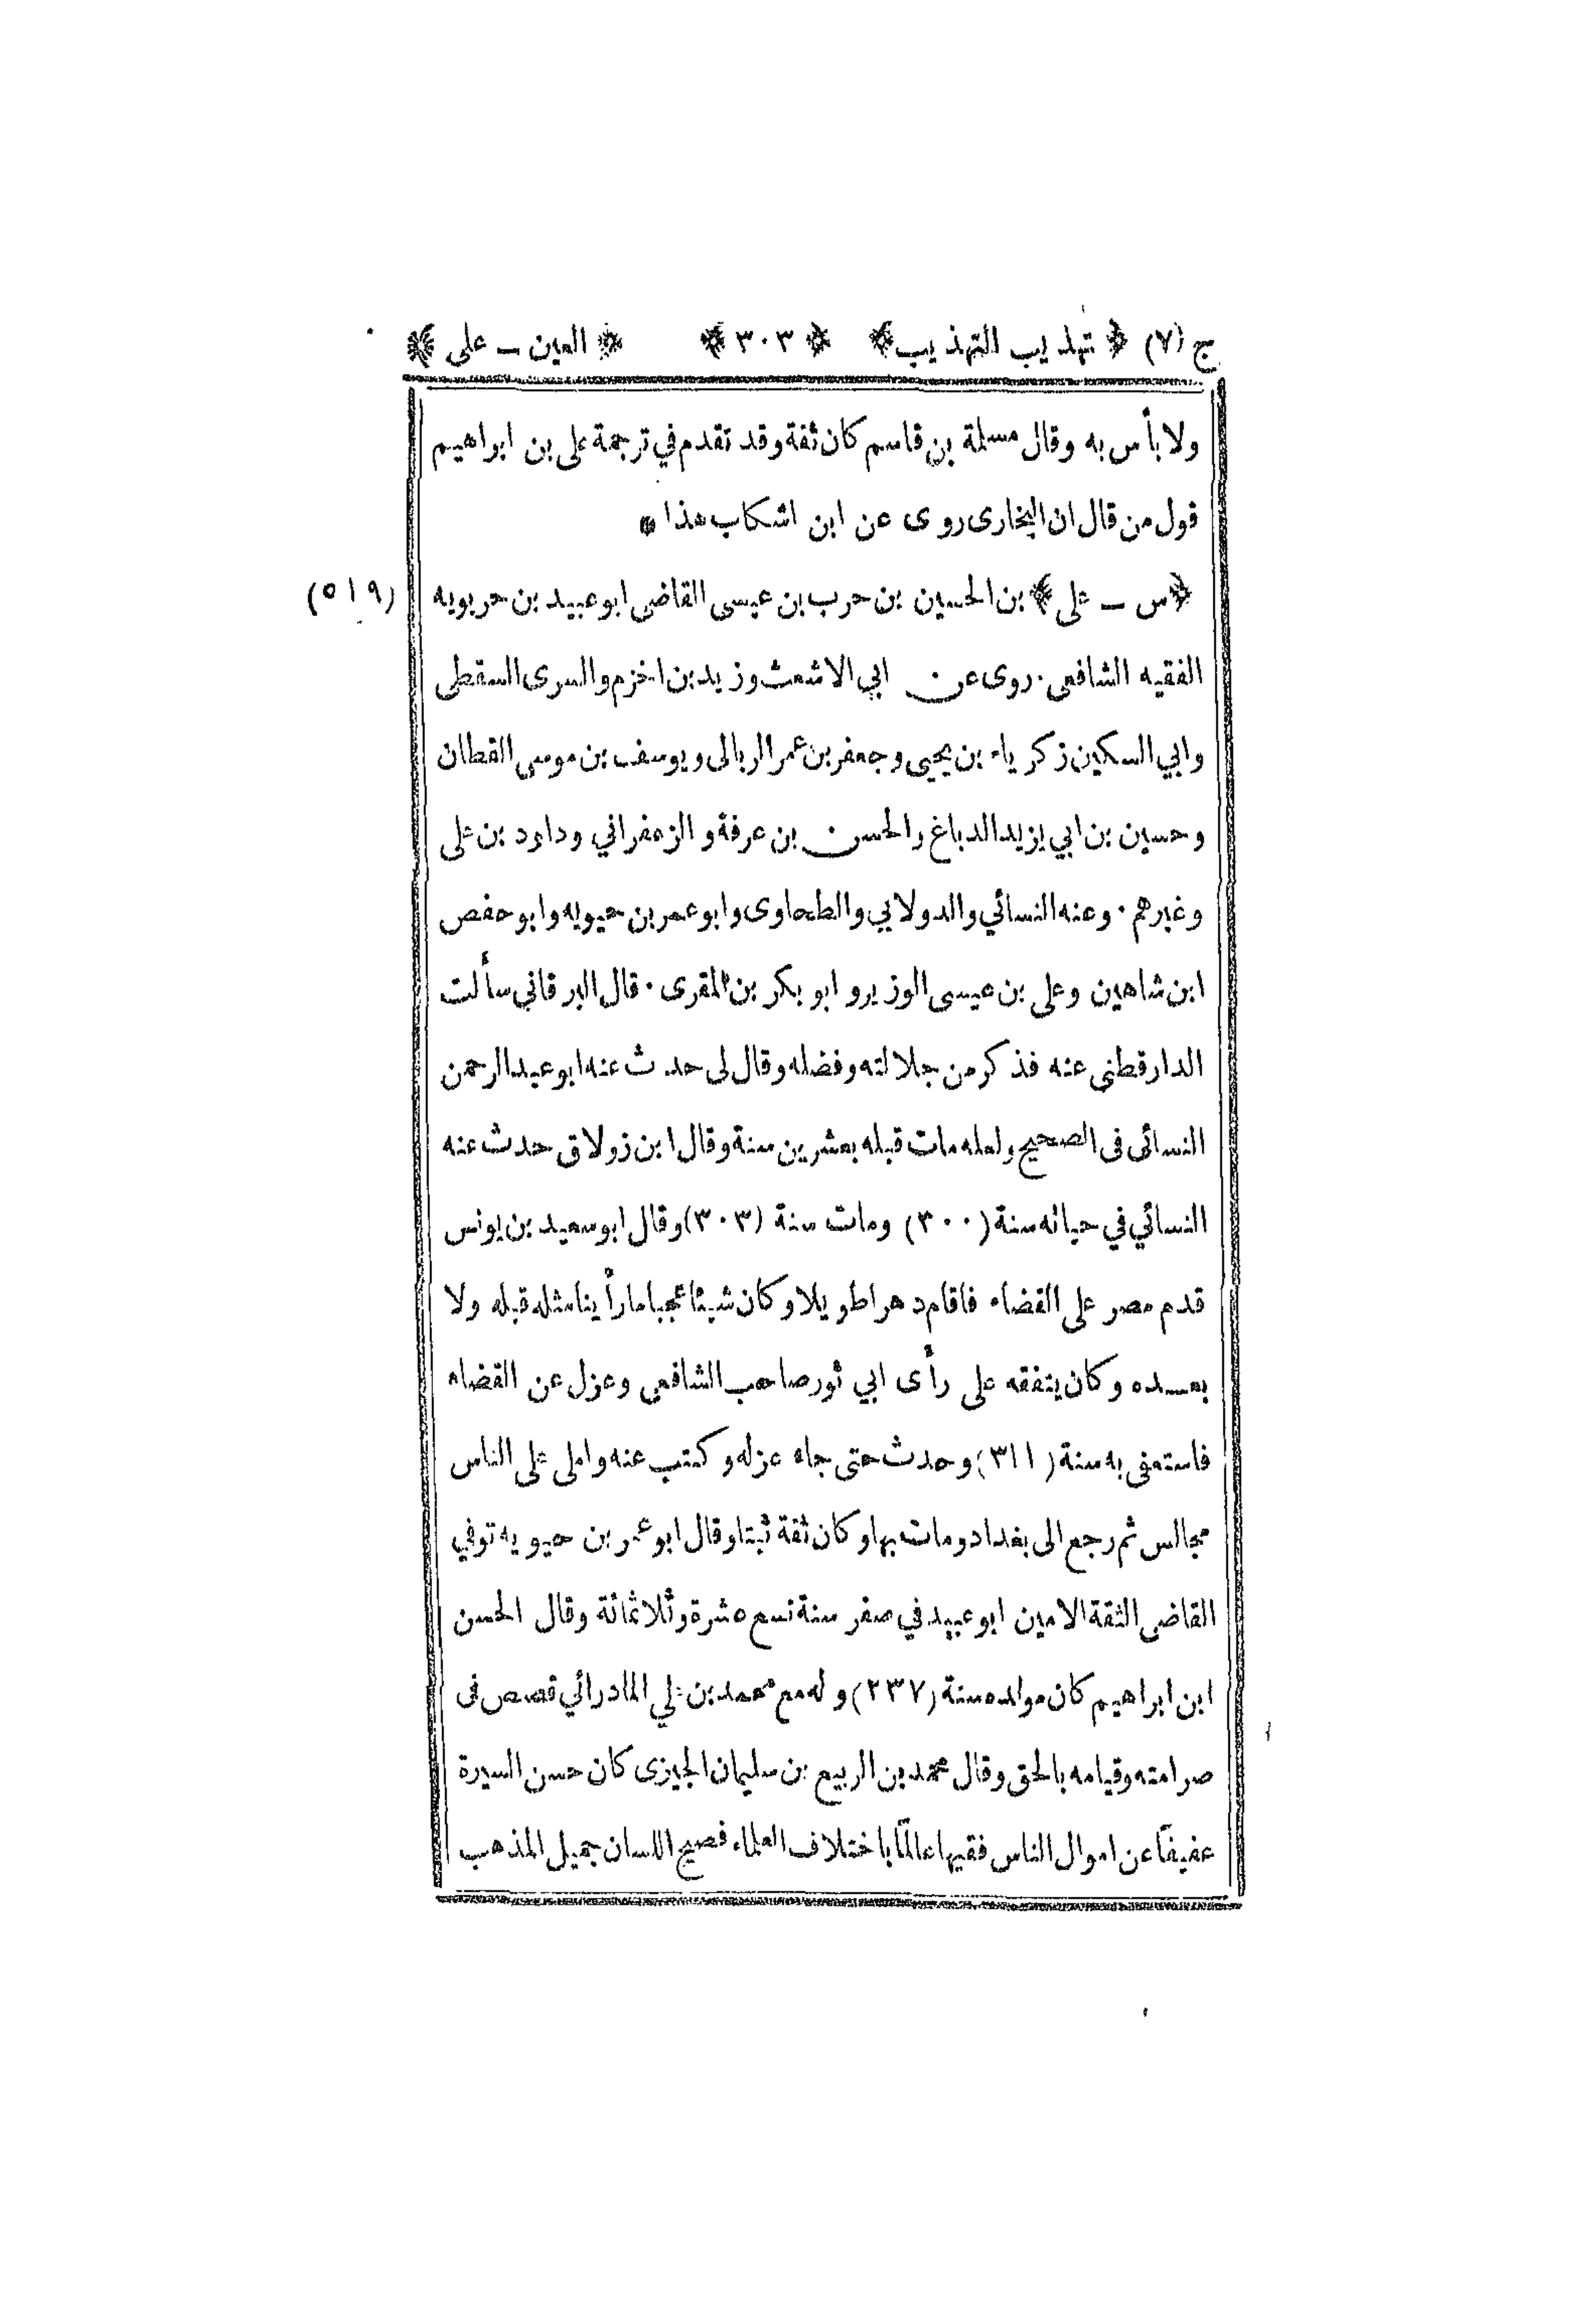 ج (٧) ﴿ تهذيب التهذيب ﴾ ﴿ ٣٠٣ ﴾ ﴿ العين ــ على ﴾
ولا بأس به وقال مسلمة بن قاسم كان ثقة وقد تقدم في ترجمة على بن ابراهيم
قول من قال ان البخارى روى عن ابن اشكاب هذا *
﴿ س ــ على ﴾ بن الحسين بن حرب بن عيسى القاضى ابو عبيد بن حربويه (٥١٩)
الفقيه الشافعى . روى عن ابي الاشعث وزيد بن اخزم والسرى السقطى
وابي السكين زكرياء بن يحيى وجعفر بن عمر الربالى ويوسف بن موسى القطان
وحسين بن ابي يزيد الدباغ والحسن بن عرفة والزعفراني وداود بن على
وغيرهم . وعنه النسائي والدولابي والطحاوى وابو عمر بن حيويه وابو حفص
ابن شاهين وعلى بن عيسى الوزير وابو بكر بن المقرى . قال البرقاني سألت
الدارقطنى عنه فذكر من جلالته وفضله وقال لى حدث عنه ابو عبد الرحمن
النسائى فى الصحيح ولعله مات قبله بعشرين سنة وقال ابن زولاق حدث عنه
النسائي في حياته سنة (٣٠٠) ومات سنة (٣٠٣) وقال ابو سعيد بن يونس
قدم مصر على القضاء فاقام دهرا طويلا وكان شيئا عجبا ما رأينا مثله قبله ولا
بعــده وكان يتفقه على رأى ابي ثور صاحب الشافعى وعزل عن القضاء
فاستعفى به سنة (٣١١) وحدث حتى جاء عزله وكتب عنه واملى على الناس
مجالس ثم رجع الى بغداد ومات بها وكان ثقة ثبتا وقال ابو عمر بن حيويه توفي
القاضى الثقة الامين ابو عبيد في صفر سنة تسع عشرة وثلاثمائة وقال الحسن
ابن ابراهيم كان مولده سنة (٢٣٧) وله مع محمد بن علي المادرائي قصص فى
صرامته وقيامه بالحق وقال محمد بن الربيع بن سليمان الجيزى كان حسن السيرة
عفيفًا عن اموال الناس فقيها عالمًا باختلاف العلماء فصيح اللسان جميل المذهب